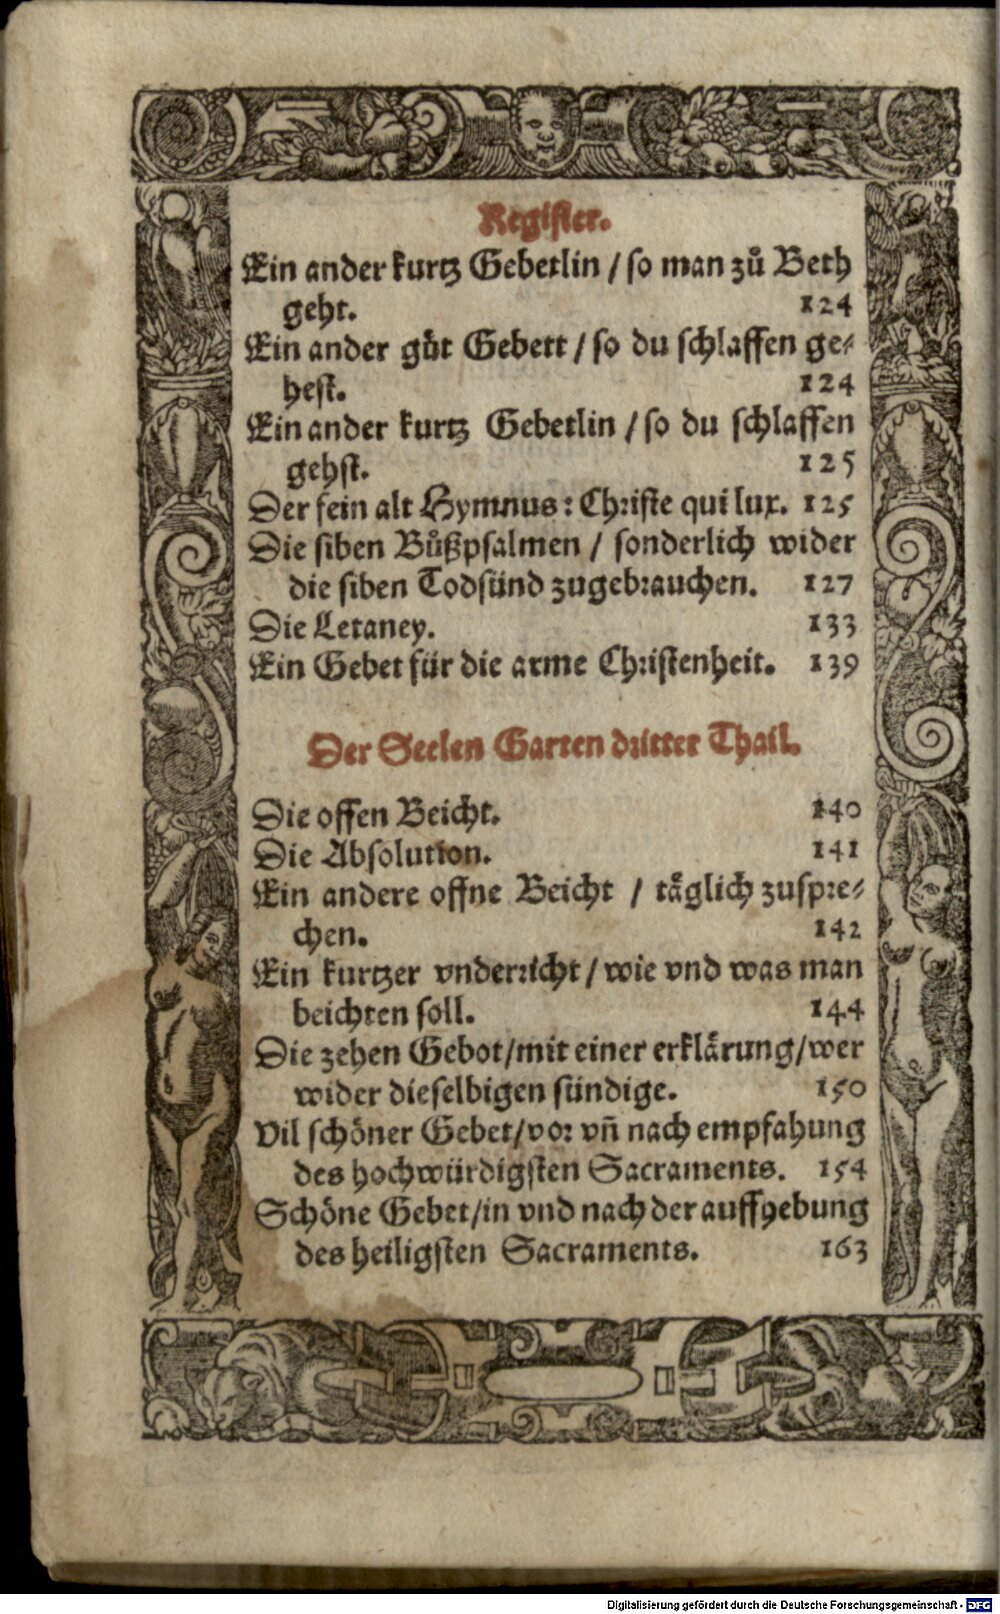 Register.
Ein ander kurtz Gebetlin / so man zů Beth
geht. 124
Ein ander gůt Gebett / so du schlaffen ge⸗
hest. 124
Ein ander kurtz Gebetlin / so du schlaffen
gehst. 125
Der fein alt Hymnus: Christe qui lux. 125
Die siben Bůßpsalmen / sonderlich wider
die siben Todsünd zugebrauchen. 127
Die Letaney. 133
Ein Gebet für die arme Christenheit. 139
Der Seelen Garten dritter Thail.
Die offen Beicht. 140
Die Absolution. 141
Ein andere offne Beicht / täglich zuspre⸗
chen. 142
Ein kurtzer vnderricht / wie vnd was man
beichten soll. 144
Die zehen Gebot/mit einer erklärung/wer
wider dieselbigen sündige. 150
Vil schöner Gebet/vor vñ nach empfahung
des hochwürdigsten Sacraments. 154
Schöne Gebet/in vnd nach der auffhebung
des heiligsten Sacraments. 163
Digitalisierung gefördert durch die Deutsche Forschungsgemeinschaft - DFG